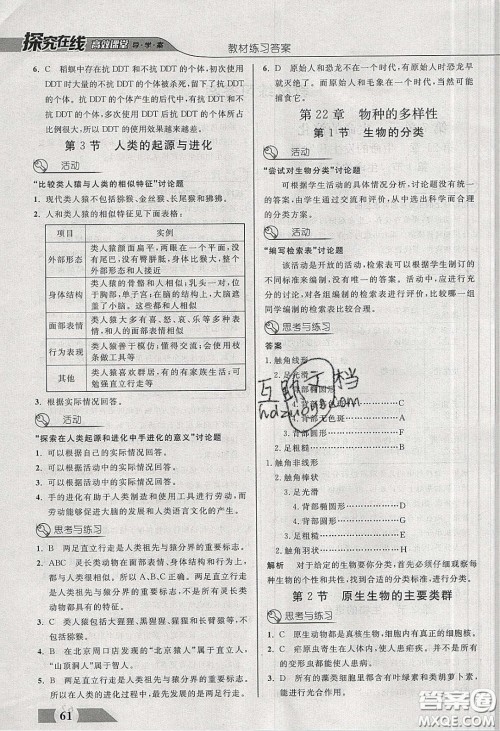 探究在线 高效课堂 导·学·案
教材练习答案
6. C 稻螟中存在抗 DDT 和不抗 DDT 的个体，初次使用
DDT 时大量的不抗 DDT 的被杀死，不具有抗 DDT
的个体被淘汰，存活下来的少量个体具有抗 DDT 的能
力。抗 DDT 的个体产生的后代中，抗 DDT 的个体所占
比例很多，所以 DDT 的使用效果越来越差。
第 3 节 人类的起源与进化
活动
“比较类人猿与人类的相似特征”讨论题
1. 现代类人猿不包括猕猴、金丝猴、长尾猴和狒狒。
2. 人和类人猿的相似特征如下表所示：
项目 实例
外部形态 类人猿颜面扁平，两眼在一个平面，
没有尾，没有臀胼胝，身体比猴大，整个
外部形态和人接近
身体结构 类人猿的骨骼和人相似；乳头一对，位
于胸部，非单子宫；大脑复杂，有盲肠和
阑尾等
面部表情 类人猿有喜、怒、哀、乐等多种表情，与人
类的面部表情相似
行为表现 类人猿善于模仿；懂得交流；会使用枝
条做工具等
其他 类人猿喜欢群居，有的有家族生活；可
勉强直立行走等
3. 根据实际情况回答。
活动
“探索在人类起源和进化中手进化的意义”讨论题
1. 可以根据自己的实际情况回答。
2. 可以根据活动中的实际情况回答。
3. 可以根据活动中的实际情况回答。
4. 手的进化有助于人类制造和使用工具进行劳动，而
劳动能够促进大脑的发展和人类语言文化的产生。
思考与练习
1. B 两足直立行走是人类祖先与猿分界的重要标志。
2. ABC 灵长类动物在动物界中是最进化的，大脑发
达；眼眶朝向前方，眶间距窄；手和脚的趾(指)分开，
大拇指灵活，多数能与其他趾(指)对握。
3. C 类人猿包括大猩猩、黑猩猩、猩猩和长臂猿等，猕
猴属于猴类，不属于类人猿。
4. B 在北京周口店发现的“北京猿人”属于直立人，
“山顶洞人”属于智人。
5. A 两足直立行走是人类祖先与猿分界的重要标志，
所以在人类的进化过程中，最先发展的是两足直立
61
6. D 原始人和恐龙不在一个时代，当原始人出现的时
候，恐龙已经灭绝很久了，因此，原始人不可能
捕食它。
第 22 章 物种的多样性
第 1 节 生物的分类
活动
“尝试对生物分类”讨论题
可根据学生活动的具体情况分析，讨论无唯一性
的答案，由学生交流和评价，从中选出科学而合理
的分类方案。
活动
“编写检索表”讨论题
该活动是开放的活动，检索表可以根据学生制订的
不同标准来编制，没有唯一的答案。活动中，应进行充
分的讨论，对各组编制的检索表进行比较，哪一组
同学编制的检索表比较合理。
思考与练习
答案
1. 触角线形
2. 足光滑
3.
4.
C
4. 背部无色斑 A
3. 背部圆形 F
2. 足粗糙 B
1. 触角非线形
2. 触角棒形
3. 足光滑
4. 背部椭圆形 E
4. 背部圆形 D
3. 足粗糙 G
2. 触角羽状 H
解析 对于给定的生物要分类，首先必须仔细观察每
种生物的个性和共性，也就是它们的不同点和相同点。
第 2 节 原生生物的主要类群
思考与练习
1. C 原生动物都是真核生物，细胞内有真正的细胞核。
2. C 疟原虫寄生在人体内，使人患病，危害人类健康。
3. D 所有的藻类细胞中都含有叶绿素和类胡萝卜素，
能进行光合作用；
互助文档
hdzuoyedom
答案圈
MXQE.COM